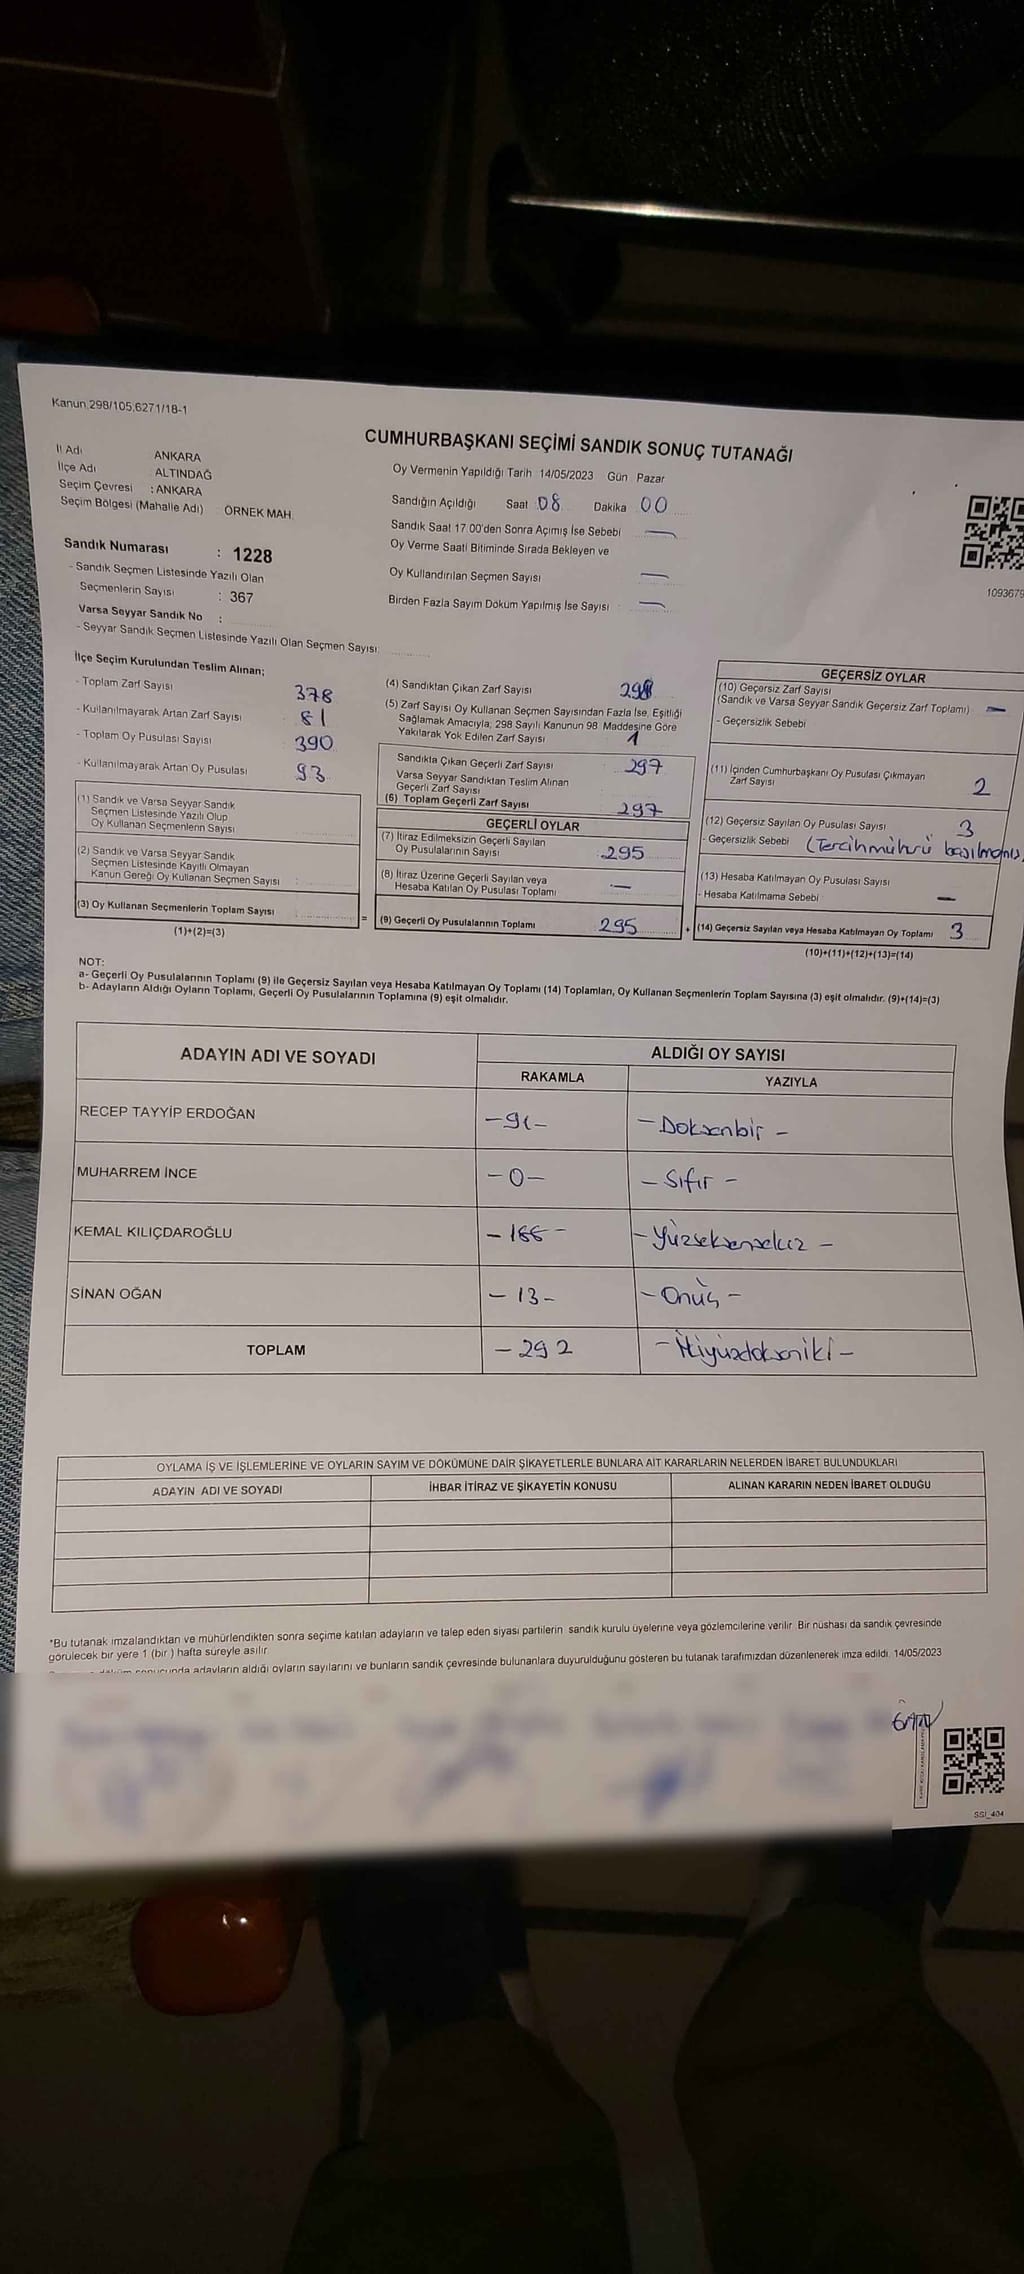 Kanun 298/105,6271/18-1
CUMHURBAŞKANI SEÇİMİ SANDIK SONUÇ TUTANAĞI
İl Adı ANKARA
İlçe Adı ALTINDAĞ
Seçim Çevresi : ANKARA
Seçim Bölgesi (Mahalle Adı) ÖRNEK MAH.
Oy Vermenin Yapıldığı Tarih 14/05/2023 Gün Pazar
Sandığın Açıldığı Saat 08 Dakika 00
Sandık Saat 17.00'den Sonra Açımış İse Sebebi —
Oy Verme Saati Bitiminde Sırada Bekleyen ve
Oy Kullandırılan Seçmen Sayısı —
Birden Fazla Sayım Döküm Yapılmış İse Sayısı : —
1093679
Sandık Numarası : 1228
- Sandık Seçmen Listesinde Yazılı Olan
Seçmenlerin Sayısı : 367
Varsa Seyyar Sandık No :
- Seyyar Sandık Seçmen Listesinde Yazılı Olan Seçmen Sayısı:
İlçe Seçim Kurulundan Teslim Alınan;
- Toplam Zarf Sayısı 378
- Kullanılmayarak Artan Zarf Sayısı 81
- Toplam Oy Pusulası Sayısı 390
- Kullanılmayarak Artan Oy Pusulası 93
(1) Sandık ve Varsa Seyyar Sandık
Seçmen Listesinde Yazılı Olup
Oy Kullanan Seçmenlerin Sayısı
(2) Sandık ve Varsa Seyyar Sandık
Seçmen Listesinde Kayıtlı Olmayan
Kanun Gereği Oy Kullanan Seçmen Sayısı :
(3) Oy Kullanan Seçmenlerin Toplam Sayısı :
(1)+(2)=(3)
=
(4) Sandıktan Çıkan Zarf Sayısı 298
(5) Zarf Sayısı Oy Kullanan Seçmen Sayısından Fazla İse, Eşitliği
Sağlamak Amacıyla, 298 Sayılı Kanunun 98. Maddesine Göre
Yakılarak Yok Edilen Zarf Sayısı 1
Sandıkta Çıkan Geçerli Zarf Sayısı 297
Varsa Seyyar Sandıktan Teslim Alınan
Geçerli Zarf Sayısı
(6) Toplam Geçerli Zarf Sayısı 297
GEÇERLİ OYLAR
(7) İtiraz Edilmeksizin Geçerli Sayılan
Oy Pusulalarının Sayısı 295
(8) İtiraz Üzerine Geçerli Sayılan veya
Hesaba Katılan Oy Pusulası Toplamı : —
(9) Geçerli Oy Pusulalarının Toplamı 295
+
GEÇERSİZ OYLAR
(10) Geçersiz Zarf Sayısı
(Sandık ve Varsa Seyyar Sandık Geçersiz Zarf Toplamı) —
- Geçersizlik Sebebi
(11) İçinden Cumhurbaşkanı Oy Pusulası Çıkmayan
Zarf Sayısı 2
(12) Geçersiz Sayılan Oy Pusulası Sayısı 3
- Geçersizlik Sebebi (Tercih mührü basılmamış)
(13) Hesaba Katılmayan Oy Pusulası Sayısı
- Hesaba Katılmama Sebebi —
(14) Geçersiz Sayılan veya Hesaba Katılmayan Oy Toplamı 3
(10)+(11)+(12)+(13)=(14)
NOT:
a- Geçerli Oy Pusulalarının Toplamı (9) ile Geçersiz Sayılan veya Hesaba Katılmayan Oy Toplamı (14) Toplamları, Oy Kullanan Seçmenlerin Toplam Sayısına (3) eşit olmalıdır. (9)+(14)=(3)
b- Adayların Aldığı Oyların Toplamı, Geçerli Oy Pusulalarının Toplamına (9) eşit olmalıdır.
ADAYIN ADI VE SOYADI ALDIĞI OY SAYISI
RAKAMLA YAZIYLA
RECEP TAYYİP ERDOĞAN -91- - Doksanbir -
MUHARREM İNCE -0- - Sıfır -
KEMAL KILIÇDAROĞLU - 188 - - Yüzseksensekiz -
SİNAN OĞAN - 13 - - Onüç -
TOPLAM - 292 - İkiyüzdoksaniki -
OYLAMA İŞ VE İŞLEMLERİNE VE OYLARIN SAYIM VE DÖKÜMÜNE DAİR ŞİKAYETLERLE BUNLARA AİT KARARLARIN NELERDEN İBARET BULUNDUKLARI
ADAYIN ADI VE SOYADI İHBAR İTİRAZ VE ŞİKAYETİN KONUSU ALINAN KARARIN NEDEN İBARET OLDUĞU
*Bu tutanak imzalandıktan ve mühürlendikten sonra seçime katılan adayların ve talep eden siyasi partilerin sandık kurulu üyelerine veya gözlemcilerine verilir. Bir nüshası da sandık çevresinde
görülecek bir yere 1 (bir) hafta süreyle asılır.
sonucunda adayların aldığı oyların sayılarını ve bunların sandık çevresinde bulunanlara duyurulduğunu gösteren bu tutanak tarafımızdan düzenlenerek imza edildi. 14/05/2023
SSI_404